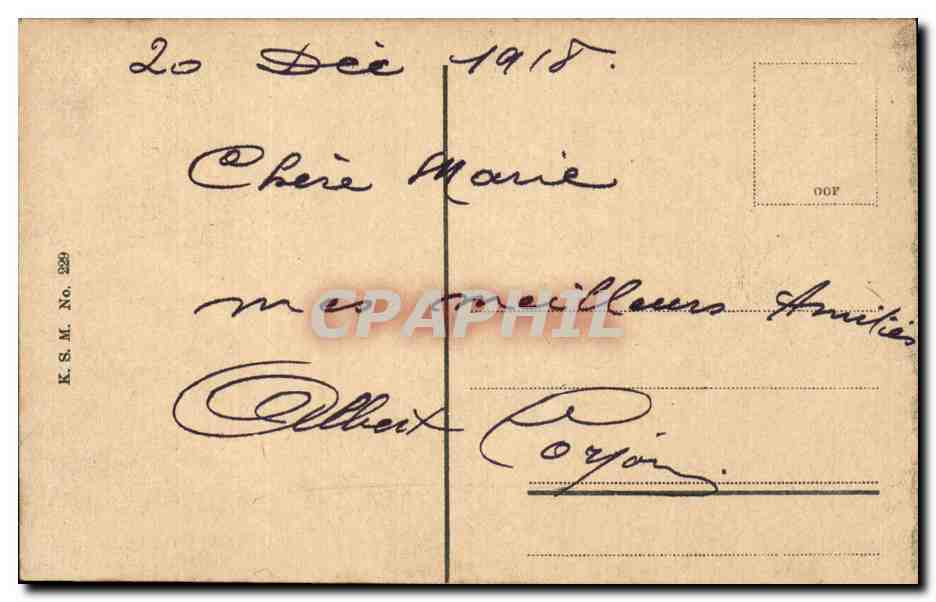 20 Déc 1918.
Chère Marie
OOF
K. S. M. No. 229
mes meilleurs Amitiés
CPAPHIL
Albert